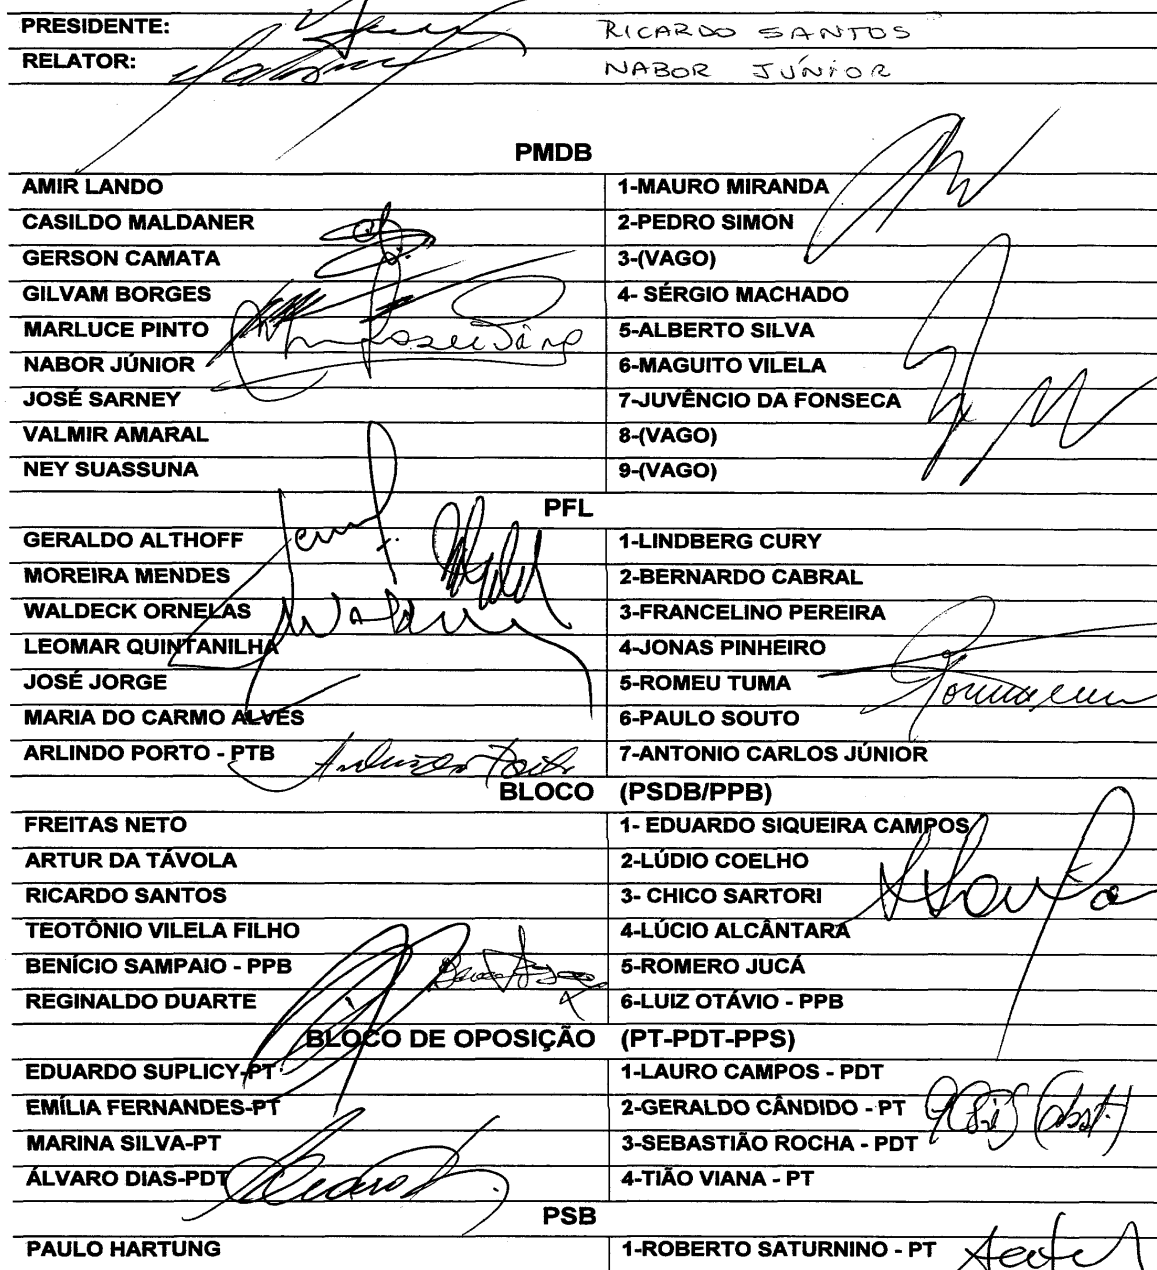 PRESIDENTE: RICARDO SANTOS
RELATOR: NABOR JÚNIOR
PMDB
AMIR LANDO 1-MAURO MIRANDA
CASILDO MALDANER 2-PEDRO SIMON
GERSON CAMATA 3-(VAGO)
GILVAM BORGES 4- SÉRGIO MACHADO
MARLUCE PINTO 5-ALBERTO SILVA
NABOR JÚNIOR 6-MAGUITO VILELA
JOSÉ SARNEY 7-JUVÊNCIO DA FONSECA
VALMIR AMARAL 8-(VAGO)
NEY SUASSUNA 9-(VAGO)
PFL
GERALDO ALTHOFF 1-LINDBERG CURY
MOREIRA MENDES 2-BERNARDO CABRAL
WALDECK ORNELAS 3-FRANCELINO PEREIRA
LEOMAR QUINTANILHA 4-JONAS PINHEIRO
JOSÉ JORGE 5-ROMEU TUMA
MARIA DO CARMO ALVES 6-PAULO SOUTO
ARLINDO PORTO - PTB 7-ANTONIO CARLOS JÚNIOR
BLOCO (PSDB/PPB)
FREITAS NETO 1- EDUARDO SIQUEIRA CAMPOS
ARTUR DA TÁVOLA 2-LÚDIO COELHO
RICARDO SANTOS 3- CHICO SARTORI
TEOTÔNIO VILELA FILHO 4-LÚCIO ALCÂNTARA
BENÍCIO SAMPAIO - PPB 5-ROMERO JUCÁ
REGINALDO DUARTE 6-LUIZ OTÁVIO - PPB
BLOCO DE OPOSIÇÃO (PT-PDT-PPS)
EDUARDO SUPLICY-PT 1-LAURO CAMPOS - PDT
EMÍLIA FERNANDES-PT 2-GERALDO CÂNDIDO - PT
MARINA SILVA-PT 3-SEBASTIÃO ROCHA - PDT
ÁLVARO DIAS-PDT 4-TIÃO VIANA - PT
PSB
PAULO HARTUNG 1-ROBERTO SATURNINO - PT